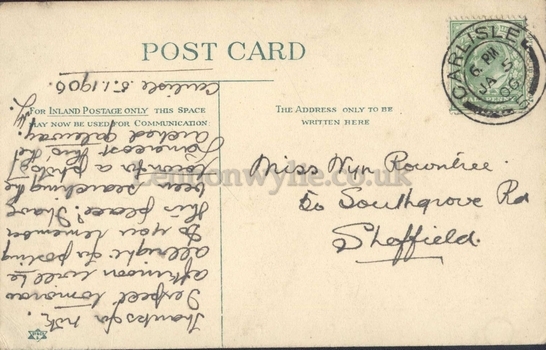 POST CARD
FOR INLAND POSTAGE ONLY THIS SPACE
MAY NOW BE USED FOR COMMUNICATION
THE ADDRESS ONLY TO BE
WRITTEN HERE
CARLISLE
6. PM
JA 5
06
Carlisle 5.1.1906.
Thanks for
I expect tomorrow
afternoon will be
allright for posting
Do you remember
this place? I have
been searching the
town for a photo
nearest this, the
arched gateway.
Miss Wyn Rowntree
50 Southgrove Rd
Sheffield.
Lennonwylie.co.uk